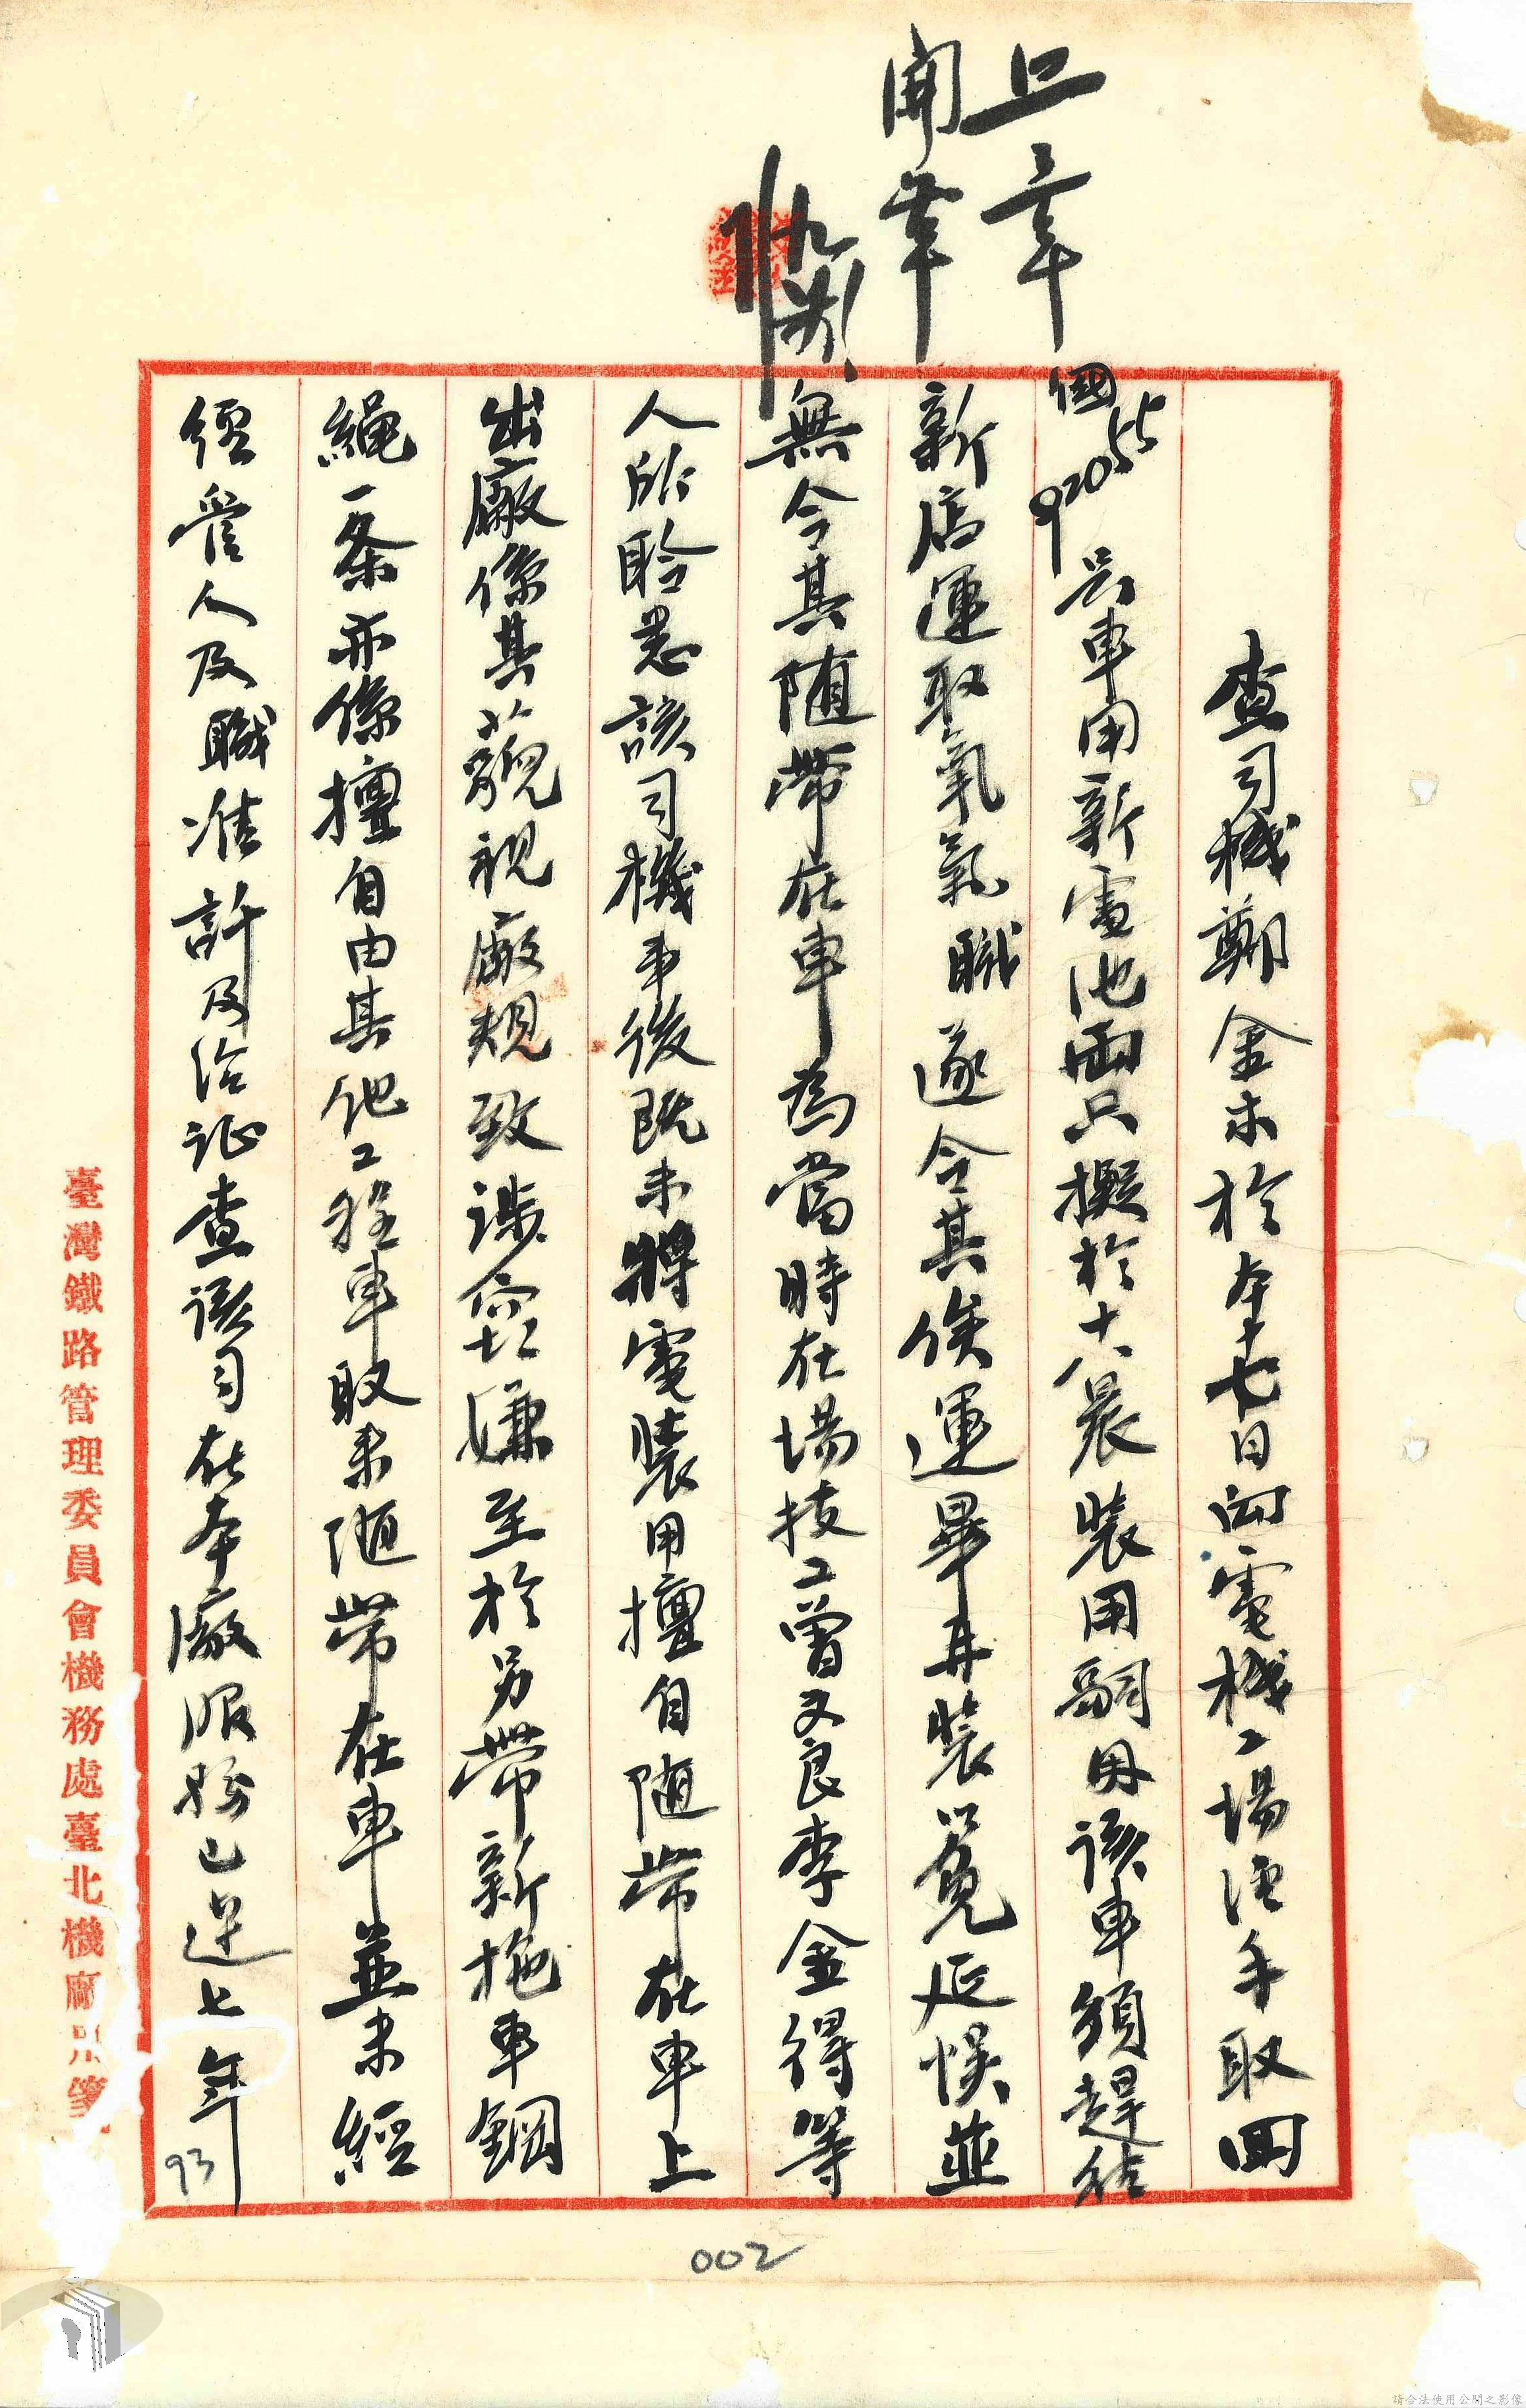 查司機鄭金木於本十七日向電機工場經手取回
國92055号車用新電池兩只擬於十八晨裝用嗣因該車須趕往
新店運取氧氣職遂令其俟運畢再裝以免延悮並
無令其随帶在車為當時在場技工曾文良李金得等
人所聆悉該司機事後既未將電裝用擅自随帶在車上
出廠係其藐視廠規致涉竊嫌至於另帶新拖車鋼
繩一条亦係擅自由其他工程車取来随帶在車並未經
經管人及職准許及洽記查該司在本廠服務已逆七年
臺灣鐵路管理委員會機務處臺北機廠用箋
93
002
請合法使用公開之影像